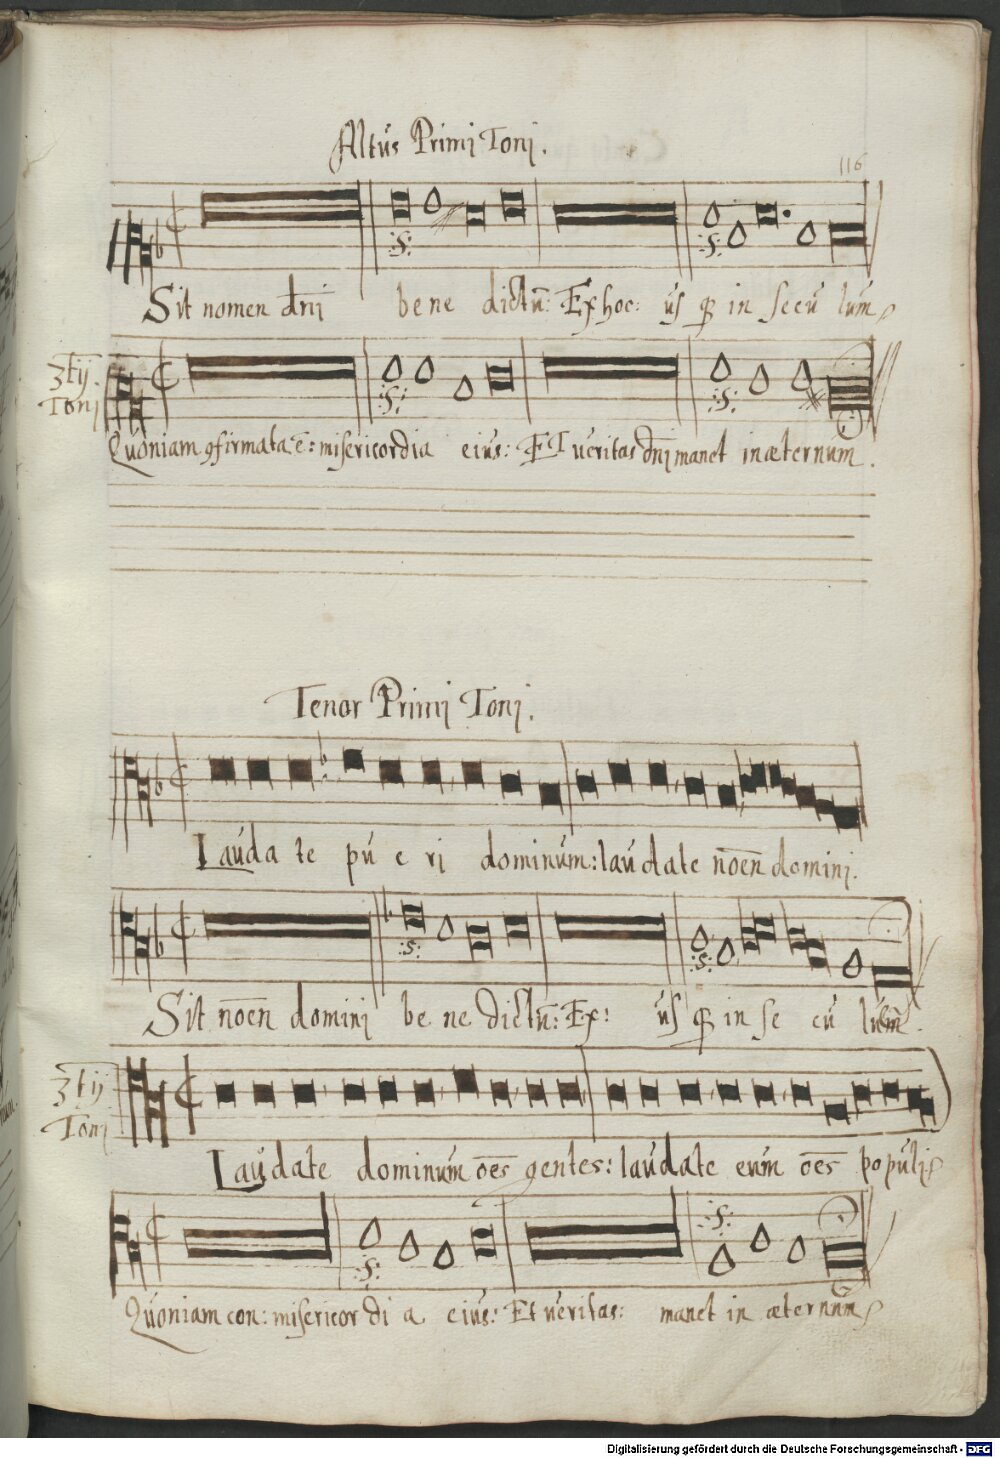 Altus Primi Toni.
116
Sit nomen dni bene dictu: Ex hoc: us q in secu lum
3tij Toni
Quoniam 9firmata e: misericordia eius: ET ueritas dni manet in æternum.
Tenor Primi Toni.
Lauda te pu e ri dominum: laudate noen domini.
Sit noen domini be ne dictu: Ex: us q in se cu lum.
3tij Toni
Laudate dominum oes gentes: laudate eum oes populi
Quoniam con: misericor di a eius: Et ueritas: manet in æternum
Digitalisierung gefördert durch die Deutsche Forschungsgemeinschaft - DFG